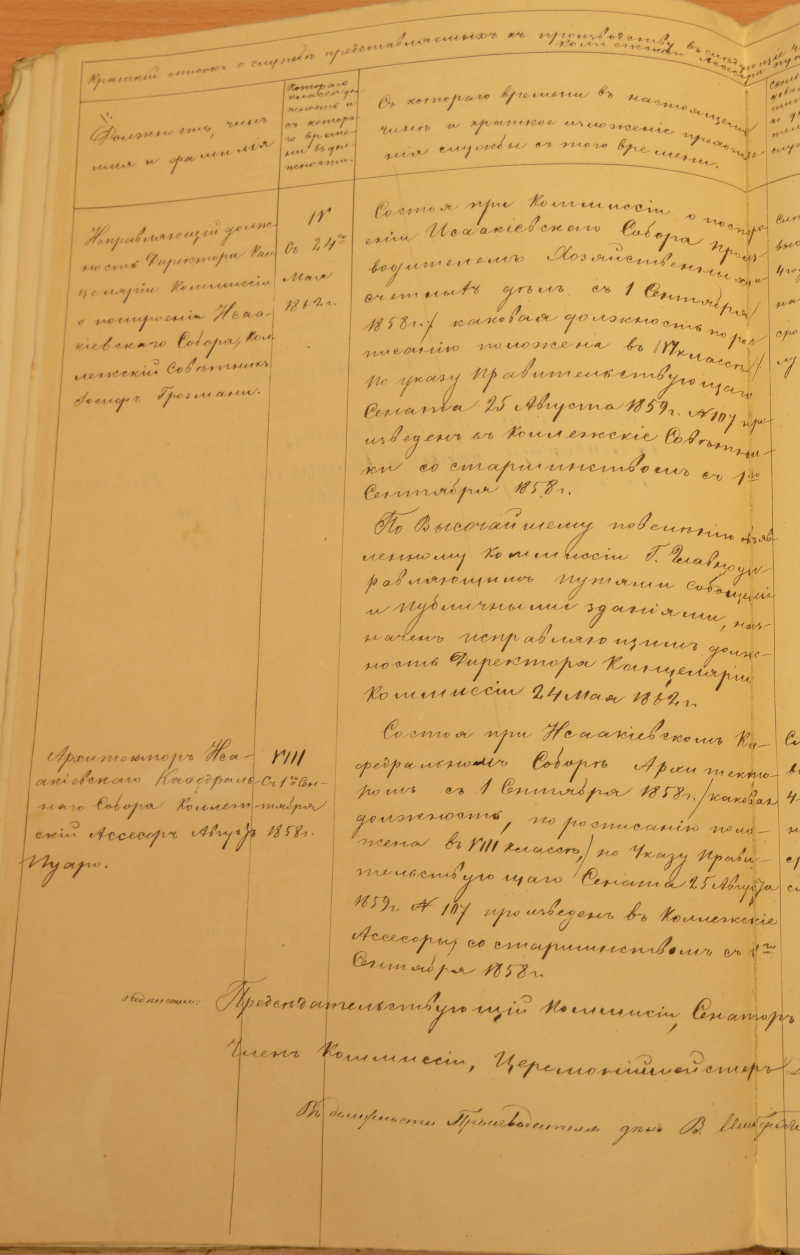 Краткій списокъ о службѣ представляемыхъ къ производству въ слѣдующіе
Коллежскій Ассесоръ
Должность, чинъ
имя и фамилія
Котораго
класса до-
лжность и
съ котора-
го време-
ни въ дол-
жности.
Съ котораго времени въ настоящемъ
чинѣ и краткое изложеніе прохожде-
нія службы съ того времени.
Исправляющій долж-
ность Директора Кан-
целяріи Коммиссіи
о построеніи Исаа-
кіевскаго Собора, Кол-
лежскій Совѣтникъ
Іосифъ Гроздани.
IV
Съ 24го
Мая
1862 г.
Состоя при Коммиссіи о постро-
еніи Исаакіевскаго Собора Произ-
водителемъ Хозяйственныхъ и
счетныхъ дѣлъ съ 1 Сентября
1858 г. / каковая должность по рос-
писанію положена въ VI классѣ /
по указу Правительствующаго
Сената 25 Августа 1859 г. № 107 про-
изведенъ въ Коллежскіе Совѣтни-
ки со старшинствомъ съ 1го
Сентября 1858 г.
По Высочайшему повелѣнію объяв-
ленному Коммиссіи Г. Главноуп-
равляющимъ путями сообщенія
и публичными зданіями, наз-
наченъ исправляющимъ долж-
ность Директора Канцеляріи
Коммиссіи 24 Мая 1862 г.
Архитекторъ Иса-
акіевскаго Каѳедраль-
наго Собора Коллеж-
скій Ассесоръ Августъ
Пуаро.
VIII
Съ 1го Сен-
тября
1858 г.
Состоя при Исаакіевскомъ Ка-
ѳедральномъ Соборѣ Архитекто-
ромъ съ 1 Сентября 1858 г. / каковая
должность, по росписанію поло-
жена въ VIII классѣ, / по Указу Прави-
тельствующаго Сената 25 Августа
1859 г. № 107 произведенъ въ Коллежскіе
Ассесоры со старшинствомъ съ 1го
Сентября 1858 г.
Подписали: Предсѣдательствующій Коммиссіи, Сенаторъ
Членъ Коммиссіи, Церемоніймейстеръ
Въ должности Производителя дѣлъ В.